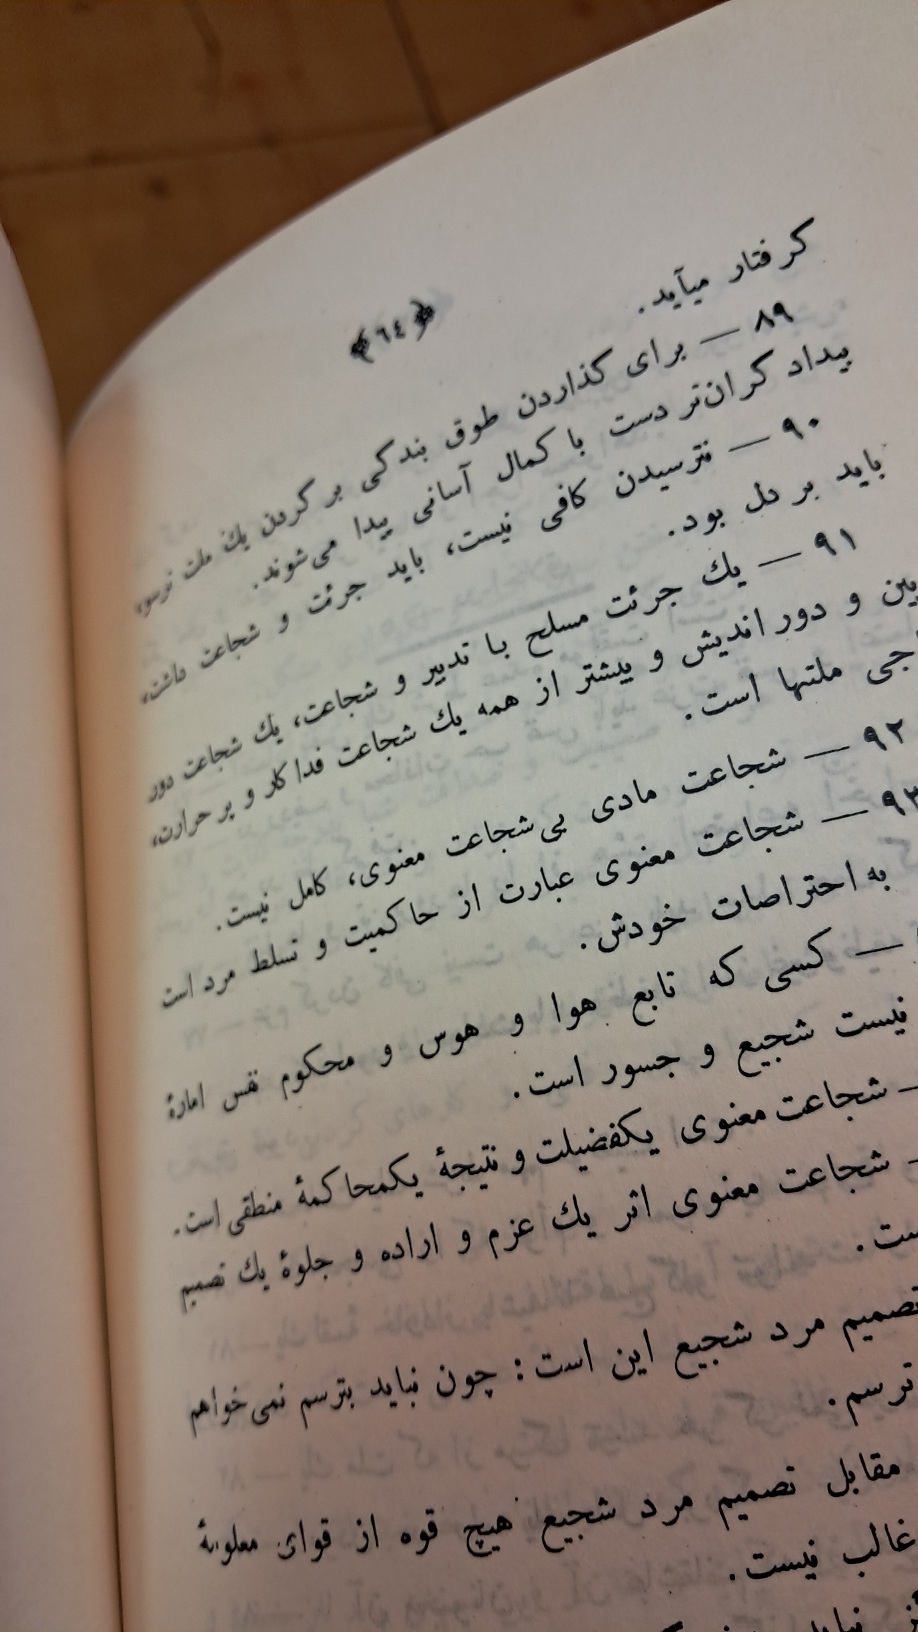 ﴿٦٤﴾
گرفتار میآید.
٨٩ — برای گذاردن طوق بندگی بر گردن یك ملت ترسو،
بیداد گران‌تر دست با کمال آسانی پیدا می‌شوند.
٩٠ — نترسیدن کافی نیست، باید جرئت و شجاعت داشت،
باید بر دل بود.
٩١ — یك جرئت مسلح با تدبیر و شجاعت، یك شجاعت دور
بین و دور اندیش و بیشتر از همه یك شجاعت فداکار و پر حرارت،
جی ملتها است.
٩٢ — شجاعت مادی بی‌شجاعت معنوی، کامل نیست.
٩٣ — شجاعت معنوی عبارت از حاکمیت و تسلط مرد است
به احتراصات خودش.
— کسی که تابع هوا و هوس و محکوم نفس امارهٔ
نیست شجیع و جسور است.
— شجاعت معنوی یکفضیلت و نتیجهٔ یکمحاکمهٔ منطقی است.
— شجاعت معنوی اثر یك عزم و اراده و جلوهٔ یك تصمیم
ست.
تصمیم مرد شجیع این است: چون نباید بترسم نمی‌خواهم
ترسم.
مقابل تصمیم مرد شجیع هیچ قوه از قوای معلومهٔ
غالب نیست.
نباید